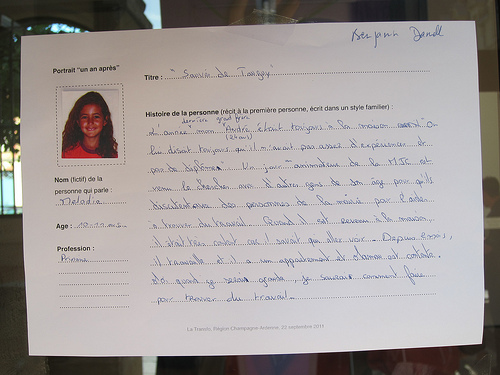 Benjamin Dandl
Portrait "un an après"
Titre : "Samir de Torigny"
Histoire de la personne (récit à la première personne, écrit dans un style familier) :
dernière grand frère
L'année mon "André" était toujours à la maison On
(24 ans)
lui disait toujours qu'il n'avait pas assez d'expérience et
pas de diplôme. Un jour un animateur de la MJC est
venu le chercher avec d'autres gens de son âge pour qu'ils
discutent avec des personnes de la mairie pour l'aider
à trouver du travail. Quand il est revenu à la maison,
il était très content car il savait qui aller voir. Depuis 6 mois,
il travaille et il a un appartement et maman est contente.
Moi quand je serais grande, je saurais comment faire
pour trouver du travail.
Nom (fictif) de la
personne qui parle :
Melodie
Age : ans
Profession :
Primaire
La Transfo, Région Champagne-Ardenne, 22 septembre 2011